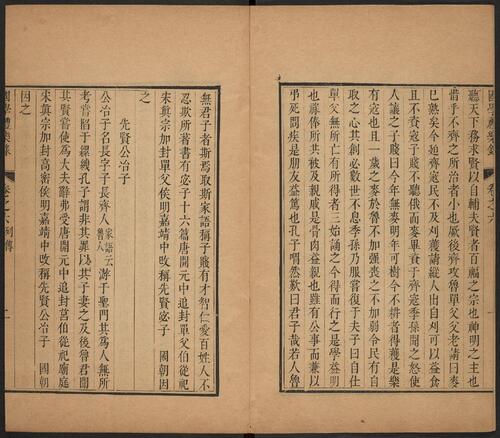 聽天下務求賢以自輔夫賢者百福之宗也神明之主也
惜乎不齊之所治者小也厥後齊攻魯單父父老請曰麥
已熟矣今廹齊寇民不及刈穫請縱人出自刈可以益食
且不資寇子賤不聽俄而麥畢資于齊寇季孫聞之怒使
人讓之子賤曰今年無麥明年可樹今不耕者得穫是樂
有寇也且一歲之麥於魯不加强喪之不加弱令民有自
取之心其創必數世不息季孫乃服嘗復于夫子曰自仕
單父無所亡有所得者三始誦之今得而行之是學益明
也俸所共被及親戚是骨肉益親也雖有公事而兼以
弔死問疾是朋友益篤也孔子喟然歎曰君子哉若人魯
無君子者斯焉取斯家語稱子賤有才智仁愛百姓人不
忍欺所著書有宓子十六篇唐開元中追封單父伯從祀
宋眞宗加封單父侯明嘉靖中改稱先賢宓子 國朝因
之
先賢公冶子
公冶子名長字子長齊人家語云魯人游于聖門其爲人無所
考嘗陷于縲絏孔子謂非其罪以其子妻之及後魯君聞
其賢嘗使爲大夫辭弗受唐開元中追封莒伯從祀廟庭
宋眞宗加封高密侯明嘉靖中改稱先賢公冶子 國朝
因之
卷之六列傳 二